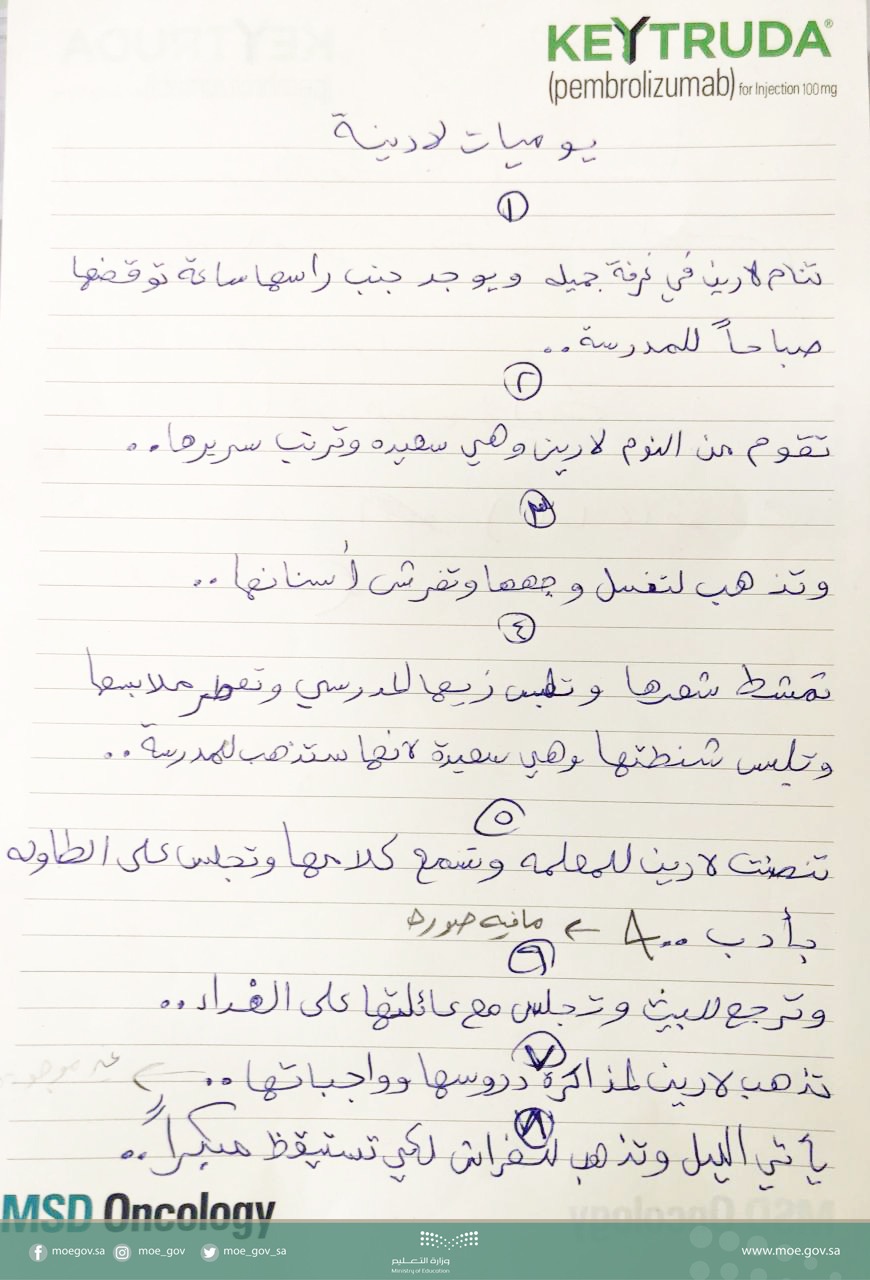 KEYTRUDA®
(pembrolizumab) for Injection 100 mg
يوميات لارينة
١
تنام لارين في غرفة جميله ويوجد جنب راسها ساعة توقضها
صباحاً للمدرسة..
٢
تقوم من النوم لارين وهي سعيده وترتب سريرها..
٣
وتذهب لتغسل وجهها وتفرش أسنانها..
٤
تمشط شعرها وتلبس زيها المدرسي وتعطر ملابسها
وتلبس شنطتها وهي سعيدة لانها ستذهب للمدرسة..
٥
تنصت لارين للمعلمه وتسمع كلامها وتجلس على الطاوله
بأدب .. ← مافيه صوره
٦
وترجع للبيت وتجلس مع عائلتها على الغداء..
٧
تذهب لارين لمذاكرة دروسها وواجباتها.. ←
٨
يأتي الليل وتذهب للفراش لكي تستيقظ مبكراً..
MSD Oncology
moegov.sa moe_gov moe_gov_sa
وزارة التعليم
Ministry of Education
www.moe.gov.sa